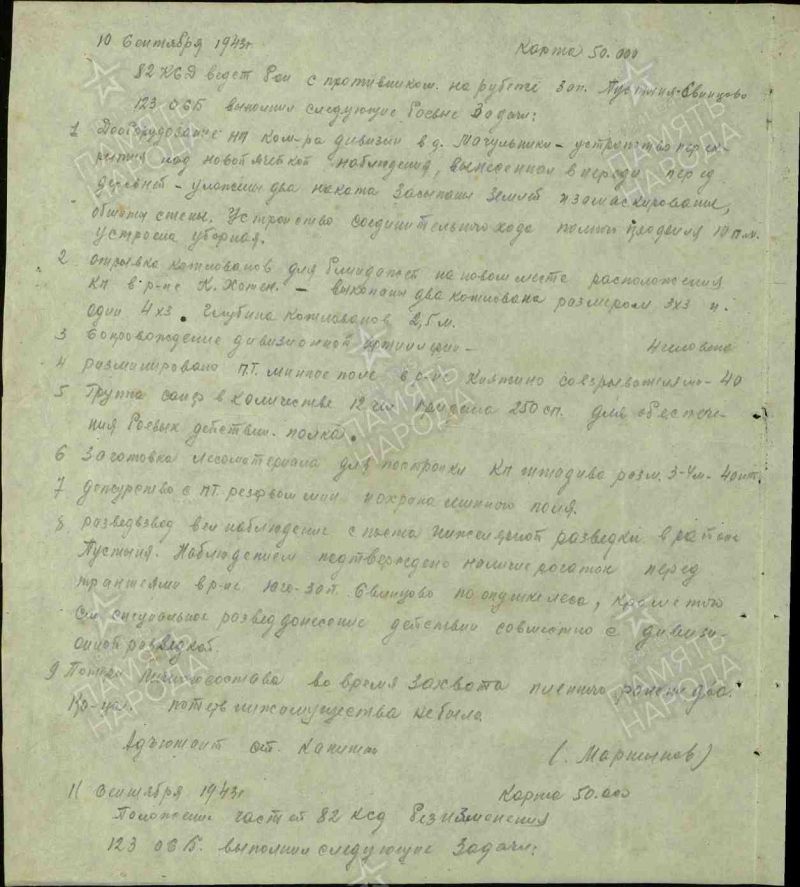 10 Сентября 1943г Карта 50.000
82 КСД ведет бои с противником на рубеже зап. Пустыня-Свинцово
123 ОСБ выполнил следующие боевые задачи:
1 Дооборудование НП ком-ра дивизии в д. Мачульники – устройство перек-
рытия над новой ячейкой наблюдения, вынесенной впереди перед
деревней – уложены два наката засыпаны землей и замаскированы,
обшиты стены. Устройство соединительного хода полного профиля 10 п.м.
устроена уборная.
2 отрывка котлованов для блиндажей на новом месте расположения
КП в р-не К. Хотен. – выкопаны два котлована размером 3х3 и
один 4х3. Глубина котлованов 2,5 м.
3 Сопровождение дивизионной артиллерии – 4 человека
4 разминировано П.Т. минное поле в р-не со взрывателями – 40
5 Группа сапер в количестве 12 чел придана 250 сп. для обеспече-
ния боевых действий полка.
6 Заготовка лесоматериала для постройки КП штадива разм. 3-4м – 40 шт.
7 дежурство с ПТ. резервом мин и охрана минного поля.
8 разведвзвод вел наблюдение с поста инженерной разведки в районе
Пустыня. Наблюдением подтверждено наличие рогаток перед
траншеями в р-не юго-зап. Свинцово по опушке леса, кроме того
см. специальное разведдонесение действий совместно с дивизи-
онной разведкой.
9 Потери личного состава во время захвата пленного ранен два.
Кр-ца. потерь инжимущества не было
Адъютант ст. Капитан
(Мартынов)
11 Сентября 1943г Карта 50.000
Положение частей 82 ксд без изменения
123 ОСБ. выполнил следующие задачи:
ПАМЯТЬ
НАРОДА
ПАМЯТЬ
НАРОДА
ПАМЯТЬ
НАРОДА
ПАМЯТЬ
НАРОДА
ПАМЯТЬ
НАРОДА